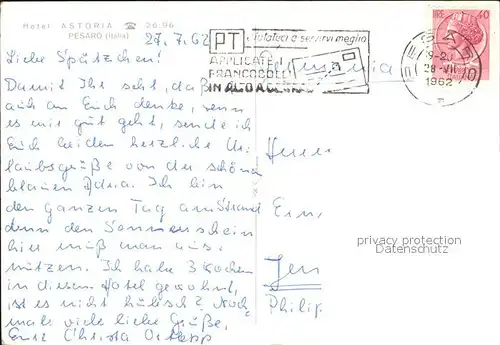 Hotel ASTORIA ☎ 26.96
PESARO (Italia)
27.7.62
Liebe Spätzchen!
Damit Ihr seht, daß ich
auch an Euch denke, wenn
es mir gut geht, sende ich
Euch beiden herzliche Ur-
laubsgrüße von der schönen
blauen Adria. Ich bin
den ganzen Tag am Strand
denn den Sonnenschein
hier muß man aus-
nützen. Ich habe 3 Wochen
in diesem Hotel gewohnt,
ist es nicht hübsch? Noch-
mals viele liebe Grüße,
Eure Christa
PT
Aiutateci a servirvi meglio
APPLICATE I
FRANCOBOLLI
IN ALTO A DESTRA
PESARO
19-20
28-VII
1962
LIRE 40
Germania
Herrn
Jen
Philip
privacy protection
Datenschutz